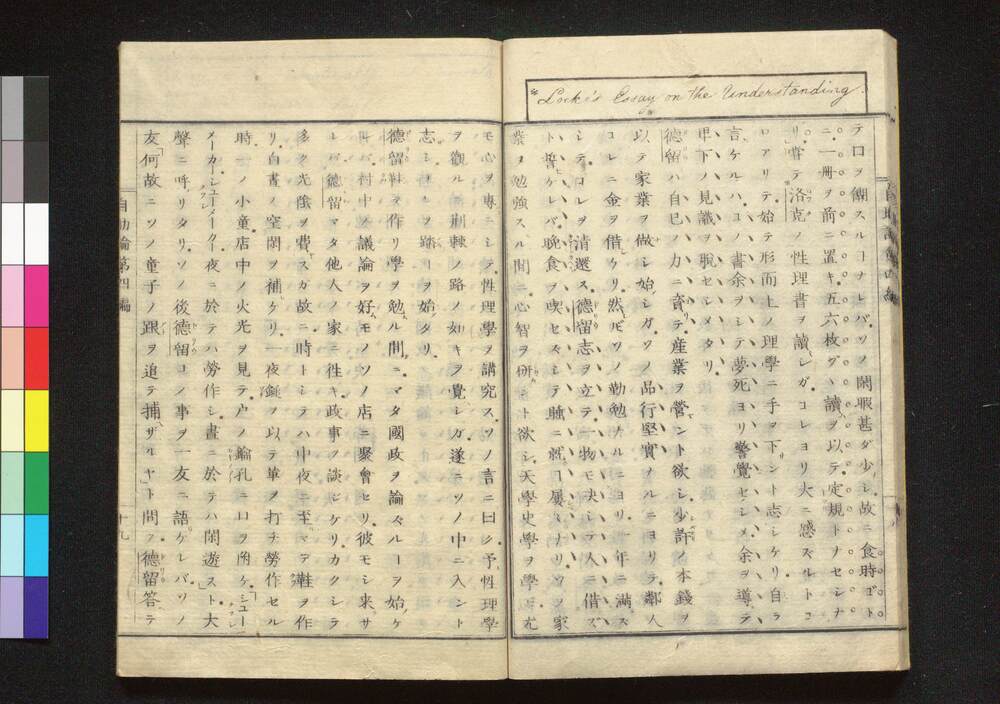 *Locke's Essay on the Understanding.
テ口ヲ餬スルヿナレバ、ソノ閑暇甚ダ少シ、故ニ食時ゴト
ニ、一冊ヲ前ニ置キ、五六枚グヽ讀ヲ以テ、定規トナセシナ
リ、嘗テ洛克ノ性理書ヲ讀シガコレヨリ大ニ感ズルトコ
ロアリテ、始テ形而上ノ理學ニ手ヲ下ント志シケリ自ラ
言ケルハ、コノ書余ヲシテ夢死ヨリ警覺セシメ、余ヲ導テ
卑下ノ見識ヲ脫セシメタリ、
德留ハ自己ノ力ニ育テ産業ヲ營ント欲シ少許ノ本錢ヲ
以テ家業ヲ做シ始シガ、ソノ品行堅實ナルニヨリテ、鄰人
コレニ金ヲ借ケリ、然ルニソノ勤勉ナルニヨリ、一年ニ滿ズ
シテ、コレヲ清還ス、德留志ヲ立テ、一物モ決シテ人ニ借ズ
ト誓ケレバ、晩食ヲ喫セズシテ睡ニ就ヿ屢々ナリ、ソノ家
業ヲ勉強スル間ニ、心智ヲ併ント欲シ、天學史學ヲ學ビ、尤
モ心ヲ專ニシテ、性理學ヲ講究ス、ソノ言ニ曰ク、予性理學
ヲ觀ルニ、荆棘ノ路ノ如キヲ覺シガ、遂ニソノ中ニ入ント
志シ、コレヲ踏ヿヲ始タリ、
德留鞋ヲ作リ學ヲ勉ル間ニ、マタ國政ヲ論ズルーヲ始ケ
レバ、村中ノ議論ヲ好ムモノ、ソノ店ニ聚會セリ、彼モシ来サ
レバ、德留マタ他人ノ家ニ往キ政事ヲ談ジケリ、カクシテ
多ク光陰ヲ費スガ故ニ、時トシテハ中夜ニ至マデ、鞋ヲ作
リ白晝ノ空閑ヲ補ケリ、一夜鎚ヲ以テ革ヲ打チ勞作セル
時、一ノ小童店中ノ火光ヲ見テ、戸ノ鑰孔ニ口ヲ附ケ、シユー
メーカー、シューメーカー夜ニ於テハ勞作シ、晝ニ於テハ閑遊スト、大
聲ニ呼ハリタリ、ソノ後德留コノ事ヲ一友ニ語ケレバ、ソノ
友何故ニソノ童子ノ跟ヲ追テ捕ザルヤト問フ、德留答テ
自助論第四編
十九